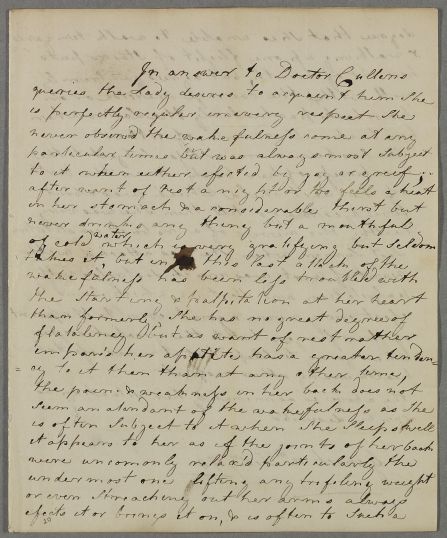 In answer to Doctor Cullens
queries the Lady desires to acquaint him She
is perfectly regular in every respect She
never observ'd the wakefulness come at any
particular times but was always most Subject
to it when either efected by joy or greif,
after want of rest a night or two feels a heat
in her stomach & a considerable thirst but
never drinks any thing but a mouthful
of cold water which is very gratifying but Seldom
takes it, but in this last attack of the
wakefulness has been less troubled with
the Starting & palpitation at her heart
than formerly She has no great degree of
flatulency but as want of rest rather
impairs her apetite has a greater tenden=
=cy to it then than at any other time,
the pain & weakness in her back does not
Seem an atendant of the wakefulness as she
is often Subject to it when She Sleeps well
it appears to her as if the joints of her back
were uncomonly relax'd particularly the
undermost one lifting any trifeling weight
or even Streaching out her arms always
efects it or brings it on, & is often to Such a
20